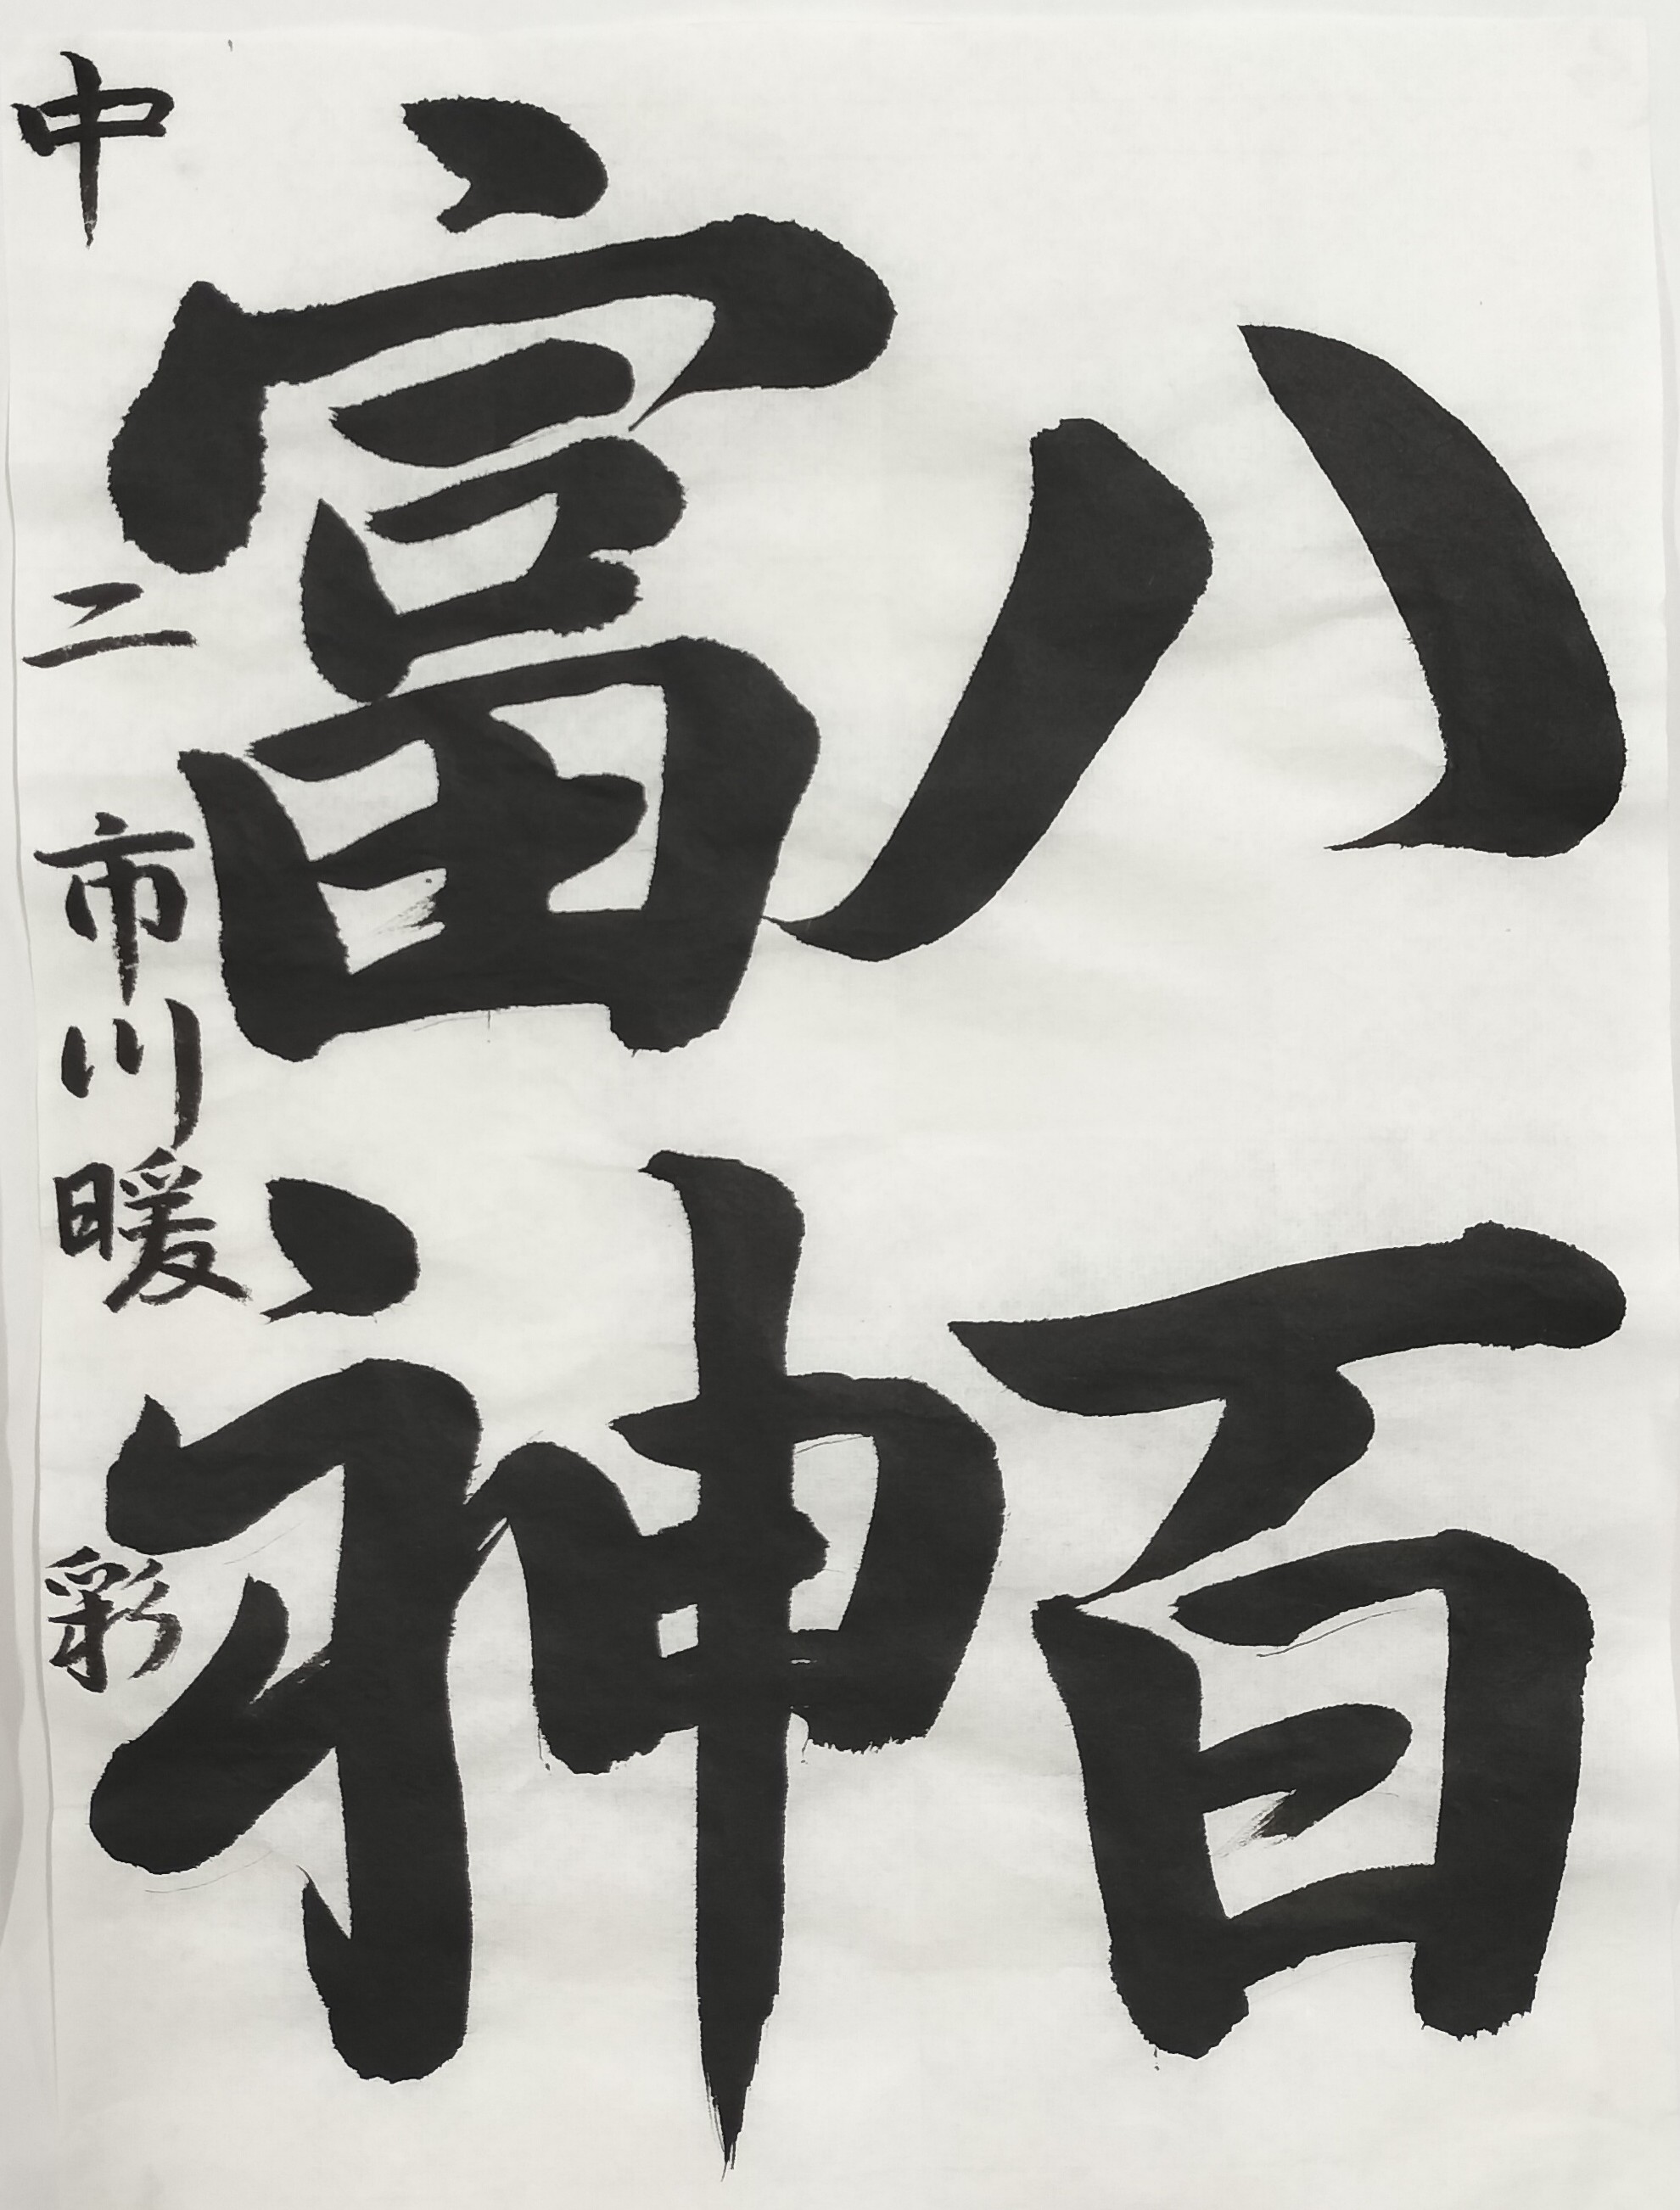 八百
富神
中二 市川暖彩